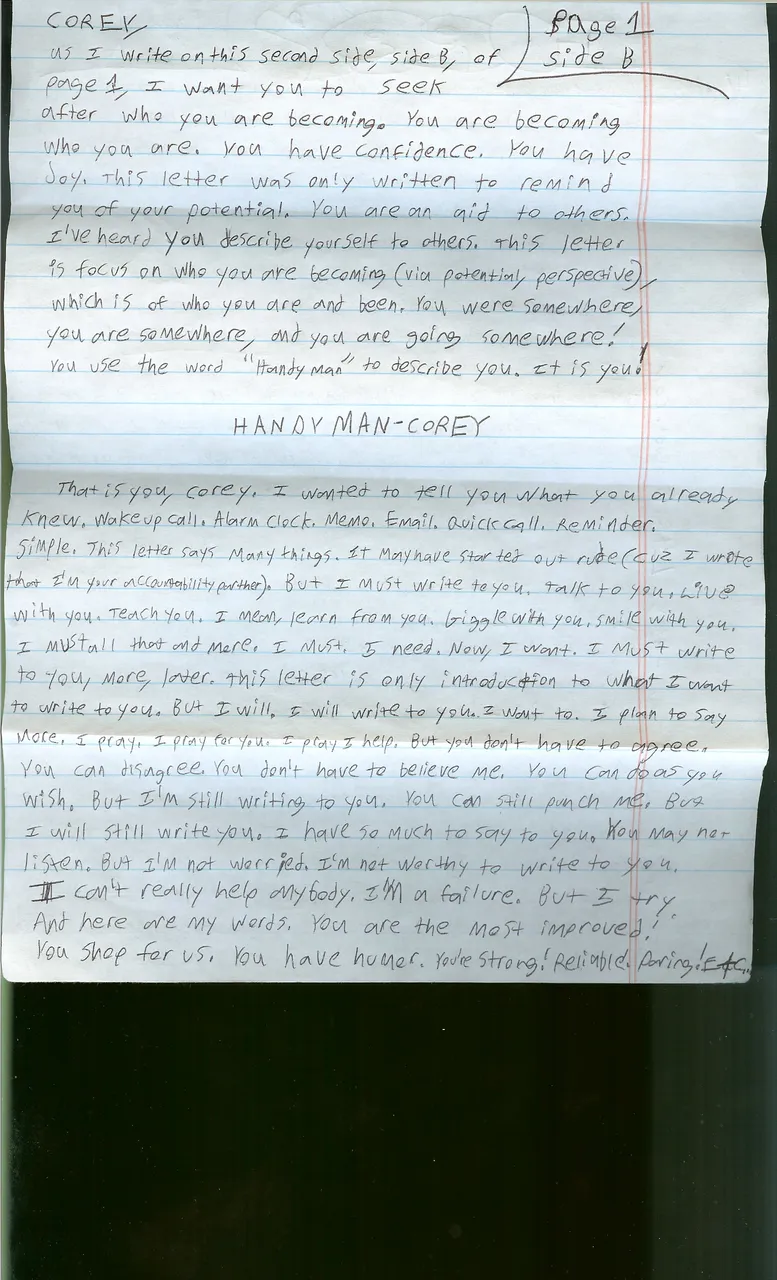 COREY,
Page 1
side B
as I write on this second side, side B, of
page 1, I want you to seek
after who you are becoming. You are becoming
who you are. You have confidence. You have
Joy. This letter was only written to remind
you of your potential. You are an aid to others.
I've heard you describe yourself to others. This letter
is focus on who you are becoming (via potential, perspective),
which is of who you are and been. You were somewhere,
you are somewhere, and you are going somewhere!
You use the word "Handy man" to describe you. It is you!
HANDY MAN-COREY
That is you, Corey. I wanted to tell you what you already
knew. Wakeup call. Alarm Clock. Memo. Email. Quick call. Reminder.
Simple. This letter says many things. It may have started out rude (cuz I wrote
that I'm your accountability partner). But I must write to you, talk to you, Live
with you. Teach you. I mean, learn from you. Giggle with you, smile with you.
I must all that and more. I must. I need. Now, I want. I must write
to you, more, later. This letter is only introduction to what I want
to write to you. But I will. I will write to you. I want to. I plan to say
more. I pray. I pray for you. I pray I help. But you don't have to agree.
You can disagree. You don't have to believe me. You can do as you
wish. But I'm still writing to you. You can still punch me. But
I will still write you. I have so much to say to you. You may not
listen. But I'm not worried. I'm not worthy to write to you.
I can't really help anybody. I'm a failure. But I try.
And here are my words. You are the most improved!
You shop for us. You have humor. You're strong! Reliable! Daring! Etc.